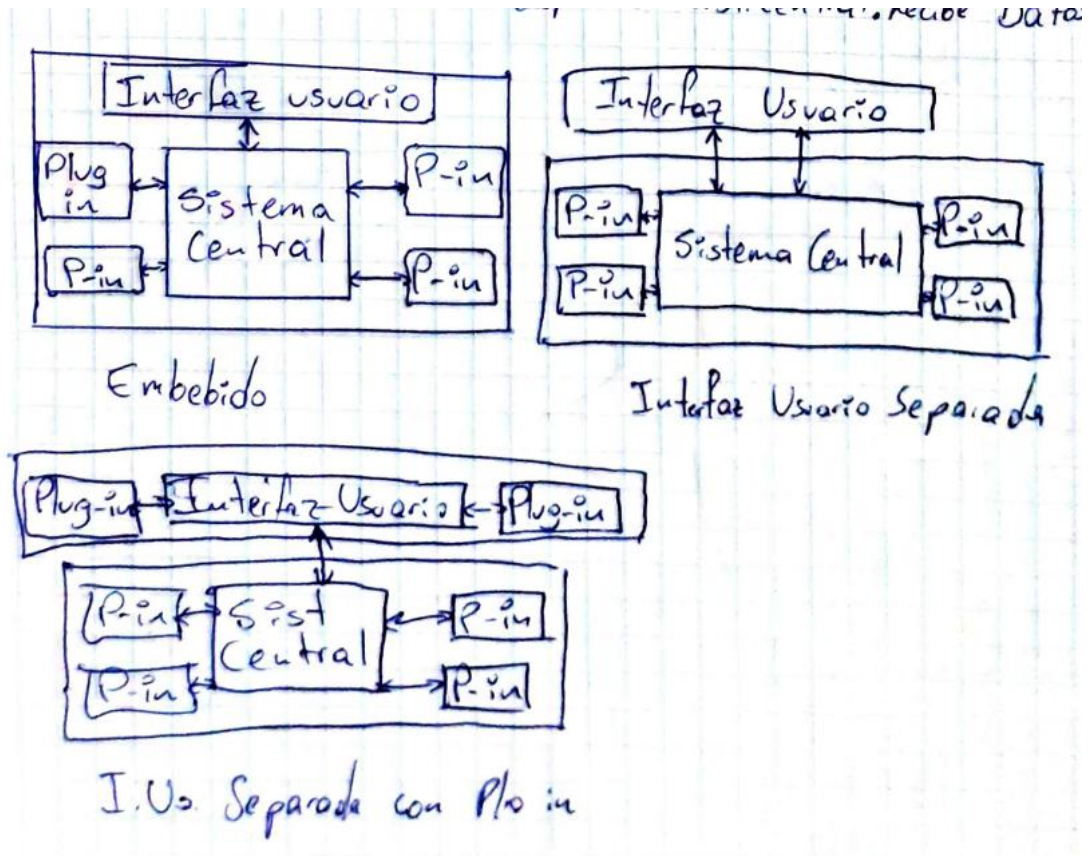 Recibe Data
Interfaz usuario
Plug
in
P-in
Sistema
Central
P-in
P-in
Embebido
Interfaz Usuario
P-in
P-in
Sistema Central
P-in
P-in
Interfaz Usuario Separada
Plug-in
Interfaz-Usuario
Plug-in
P-in
P-in
Sist
Central
P-in
P-in
I.Us. Separada con Plo in